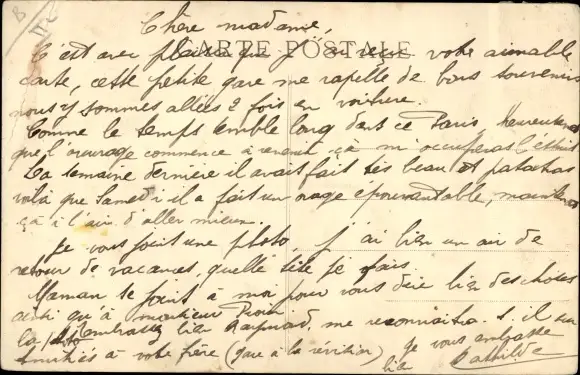 Chère madame,
CARTE POSTALE
C'est avec plaisir que j'ai reçu votre aimable
carte, cette petite gare me rapelle de bons souvenirs
nous y sommes allées 2 fois en voiture.
Comme le temps semble long dans ce Paris, heureusement
que l'ouvrage commence à revenir, ça m'occupera l'esprit
La semaine dernière il avait fait très beau et patatras
voilà que Samedi il a fait un orage épouvantable, maintenant
ça à l'air d'aller mieux.
Je vous joint une photo, j'ai bien un air de
retour de vacances, quelle tête je fais
Maman se joint à moi pour vous dire bien des choses
ainsi qu'à monsieur
Embrassez bien Raymond, me reconnaitra-t-il sur
la photo
Amitiés à votre frère (gare à la révision) je vous embrasse
bien Mathilde